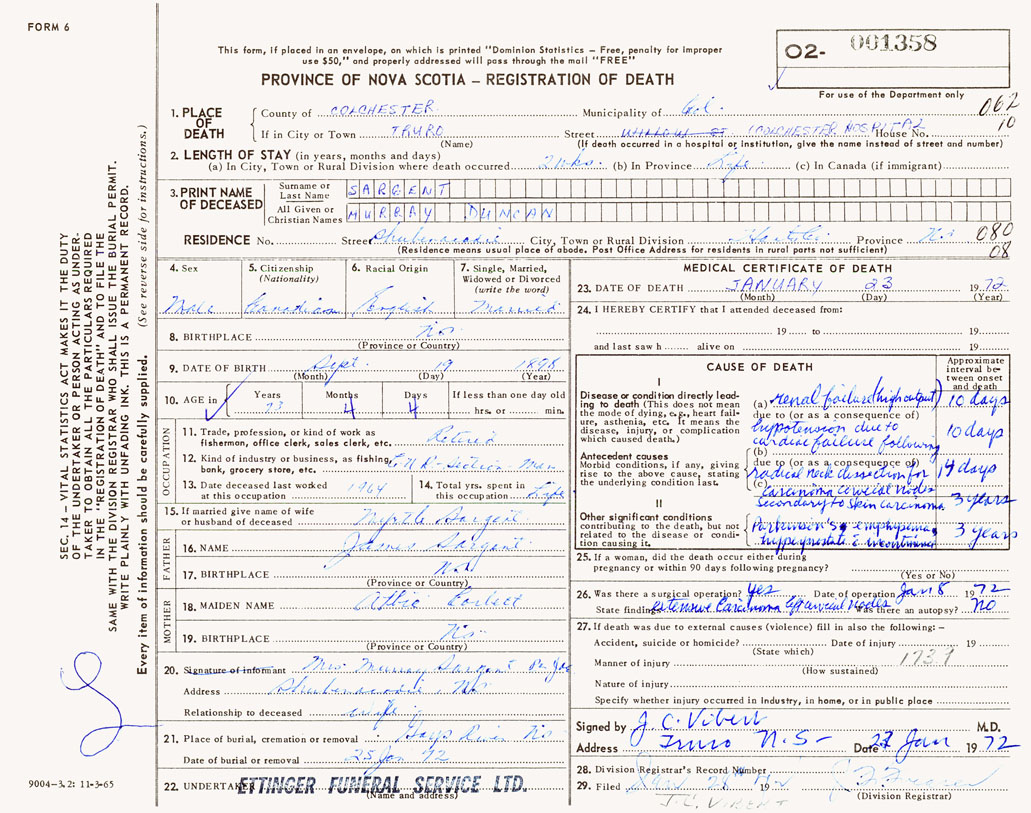 FORM 6
This form, if placed in an envelope, on which is printed "Dominion Statistics — Free, penalty for improper
use $50," and properly addressed will pass through the mail "FREE"
PROVINCE OF NOVA SCOTIA — REGISTRATION OF DEATH
O2- 001358
For use of the Department only
SEC. 14 — VITAL STATISTICS ACT MAKES IT THE DUTY
OF THE UNDERTAKER OR PERSON ACTING AS UNDER-
TAKER TO OBTAIN ALL THE PARTICULARS REQUIRED
IN THE "REGISTRATION OF DEATH" AND TO FILE THE
SAME WITH THE DIVISION REGISTRAR WHO SHALL ISSUE THE BURIAL PERMIT.
WRITE PLAINLY WITH UNFADING INK. THIS IS A PERMANENT RECORD.
Every item of information should be carefully supplied. (See reverse side for instructions.)
1. PLACE OF DEATH
County of COLCHESTER Municipality of Col. 062
If in City or Town TRURO Street COLCHESTER HOSPITAL House No. 10
(Name) (If death occurred in a hospital or institution, give the name instead of street and number)
2. LENGTH OF STAY (in years, months and days)
(a) In City, Town or Rural Division where death occurred 2 wks. (b) In Province Life (c) In Canada (if immigrant)
3. PRINT NAME OF DECEASED
Surname or Last Name SARGENT
All Given or Christian Names MURRAY DUNCAN
RESIDENCE No. Street Shubenacadie City, Town or Rural Division Province N.S. 080
(Residence means usual place of abode. Post Office Address for residents in rural parts not sufficient) 08
4. Sex Male
5. Citizenship (Nationality) Canadian
6. Racial Origin English
7. Single, Married, Widowed or Divorced (write the word) Married
8. BIRTHPLACE N.S.
(Province or Country)
9. DATE OF BIRTH Sept. 19 1898
(Month) (Day) (Year)
10. AGE in Years 73 Months 4 Days 4 If less than one day old hrs. or min.
OCCUPATION
11. Trade, profession, or kind of work as
fishermen, office clerk, sales clerk, etc. Retired
12. Kind of industry or business, as fishing,
bank, grocery store, etc. C.N.R-Section Man
13. Date deceased last worked
at this occupation 1964
14. Total yrs. spent in
this occupation Life
15. If married give name of wife
or husband of deceased Myrtle Sargent
FATHER
16. NAME James Sargent
17. BIRTHPLACE N.S.
(Province or Country)
MOTHER
18. MAIDEN NAME Corbett
19. BIRTHPLACE N.S.
(Province or Country)
20. Signature of informant Mrs. Murray Sargent
Address Shubenacadie, N.S.
Relationship to deceased wife
21. Place of burial, cremation or removal Hays River N.S.
Date of burial or removal 25 Jan 72
22. UNDERTAKER ETTINGER FUNERAL SERVICE LTD.
(Name and address)
9004-3.2: 11-3-65
MEDICAL CERTIFICATE OF DEATH
23. DATE OF DEATH JANUARY 23 1972
(Month) (Day) (Year)
24. I HEREBY CERTIFY that I attended deceased from:
19 to 19
and last saw h alive on 19
CAUSE OF DEATH
Approximate interval between onset and death
I
Disease or condition directly lead-
ing to death (This does not mean
the mode of dying, e.g., heart fail-
ure, asthenia, etc. It means the
disease, injury, or complication
which caused death.)
(a) Renal failure (high output) 10 days
due to (or as a consequence of)
hypotension due to 10 days
cardiac failure following
Antecedent causes
Morbid conditions, if any, giving
rise to the above cause, stating
the underlying condition last.
(b)
due to (or as a consequence of)
radical neck dissection for 14 days
(c) carcinoma cervical nodes
secondary to skin carcinoma 3 years
II
Other significant conditions
contributing to the death, but not
related to the disease or condi-
tion causing it.
Parkinson's, emphysema, 3 years
25. If a woman, did the death occur either during
pregnancy or within 90 days following pregnancy?
(Yes or No)
26. Was there a surgical operation? Yes Date of operation Jan 8 1972
State findings extensive carcinoma cervical nodes Was there an autopsy? NO
27. If death was due to external causes (violence) fill in also the following: —
Accident, suicide or homicide? Date of injury 19
(State which)
Manner of injury 1739
(How sustained)
Nature of injury
Specify whether injury occurred in Industry, in home, or in public place
Signed by J. C. Vibert M.D.
Address Truro N.S. Date 27 Jan 1972
28. Division Registrar's Record Number
29. Filed Jan 28th 19
(Division Registrar)
J.C. VIBERT